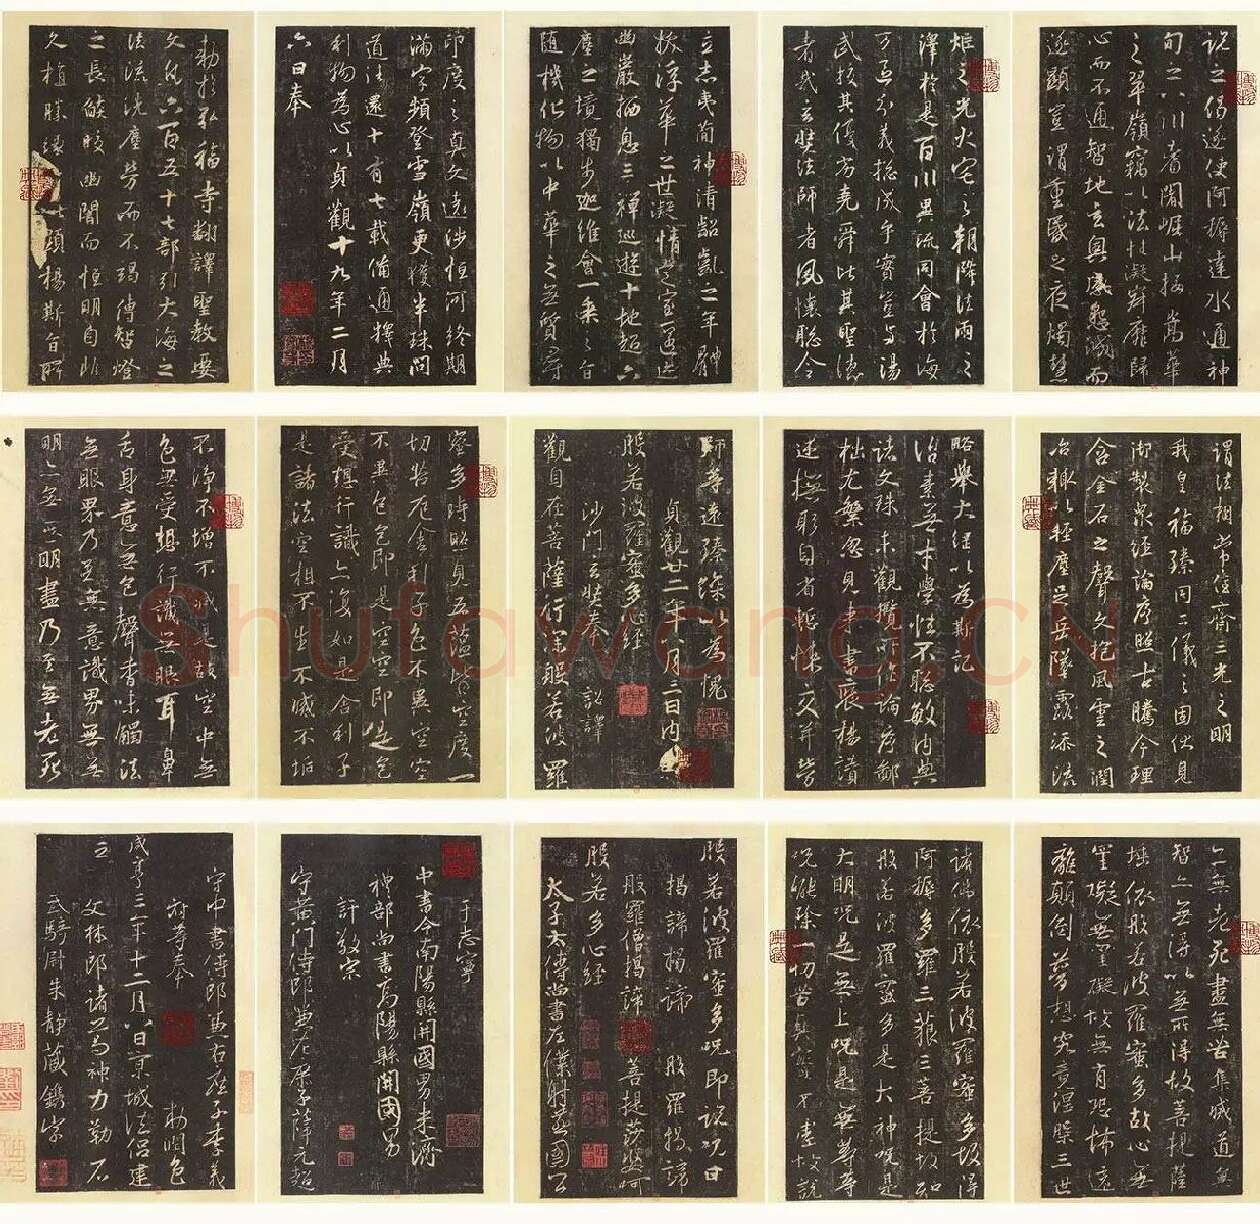 說之偈遂使阿耨達水通神
旬之八川耆闍崛山接嵩華
之翠嶺竊以法性凝寂靡歸
心而不通智地玄奧感懇誠而
遂顯豈謂重昏之夜燭慧
炬之光火宅之朝降法雨之
澤於是百川異流同會於海
萬區分義總成乎實豈與湯
武校其優劣堯舜比其聖德
者哉玄奘法師者夙懷聰令
立志夷簡神清齠齔之年體
拔浮華之世凝情定室匿迹
幽巖栖息三禪巡遊十地超六
塵之境獨步迦維會一乘之旨
隨機化物以中華之無質尋
印度之真文遠涉恒河終期
滿字頻登雪嶺更獲半珠問
道法還十有七載備通釋典
利物為心以貞觀十九年二月
六日奉
勅於弘福寺翻譯聖教要
文凡六百五十七部引大海之
法流洗塵勞而不竭傳智燈
之長焰皎幽闇而恒明自非
久植勝緣以顯揚斯旨所
謂法相常住齊三光之明
我皇福臻同二儀之固伏見
御製眾經論序照古騰今理
含金石之聲文抱風雲之潤
治輒以輕塵足岳墜露添流
略舉大綱以為斯記
治素無才學性不聰敏內典
諸文殊未觀攬所作論序鄙
拙尤繁忽見來書褒揚讚
述撫躬自省慙悚交并勞
師等遠臻深以為愧
貞觀廿二年八月三日內
般若波羅蜜多心經
沙門玄奘奉 詔譯
觀自在菩薩行深般若波羅
蜜多時照見五蘊皆空度一
切苦厄舍利子色不異空空
不異色色即是空空即是色
受想行識亦復如是舍利子
是諸法空相不生不滅不垢
不淨不增不減是故空中無
色無受想行識無眼耳鼻
舌身意無色聲香味觸法
無眼界乃至無意識界無無
明亦無無明盡乃至無老死
亦無老死盡無苦集滅道無
智亦無得以無所得故菩提薩
埵依般若波羅蜜多故心無
罣礙無罣礙故無有恐怖遠
離顛倒夢想究竟涅槃三世
諸佛依般若波羅蜜多故得
阿耨多羅三藐三菩提故知
般若波羅蜜多是大神呪是
大明呪是無上呪是無等等
呪能除一切苦真實不虛故說
般若波羅蜜多呪即說呪曰
揭諦揭諦 般羅揭諦
般羅僧揭諦 菩提莎婆呵
般若多心經
太子太傅尚書左僕射燕國公
于志寧
中書令南陽縣開國男來濟
禮部尚書高陽縣開國男
許敬宗
守黃門侍郎兼左庶子薛元超
守中書侍郎兼右庶子李義
府等奉 勅潤色
咸亨三年十二月八日京城法侶建
立 文林郎諸葛神力勒石
武騎尉朱靜藏鐫字
Shufawang.CN